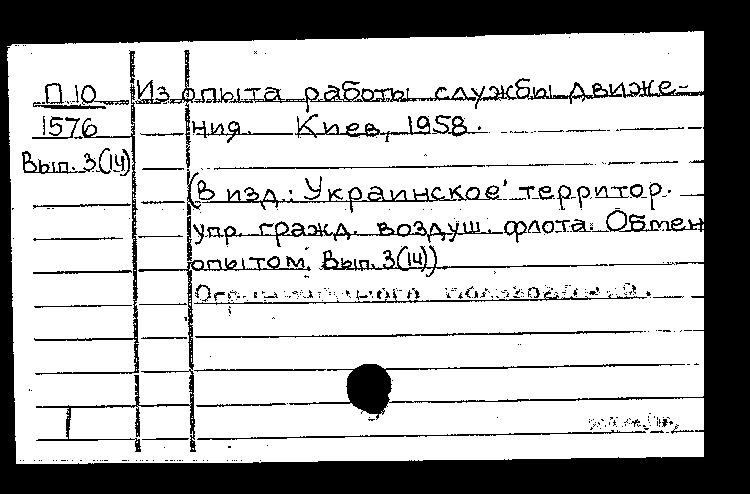 П 10 Из опыта работы службы движе-
1576 ния. Киев, 1958.
Вып. 3(14)
(В изд.: Украинское территор.
упр. гражд. воздуш. флота. Обмен
опытом. Вып. 3(14))
Ограниченного пользования.
1